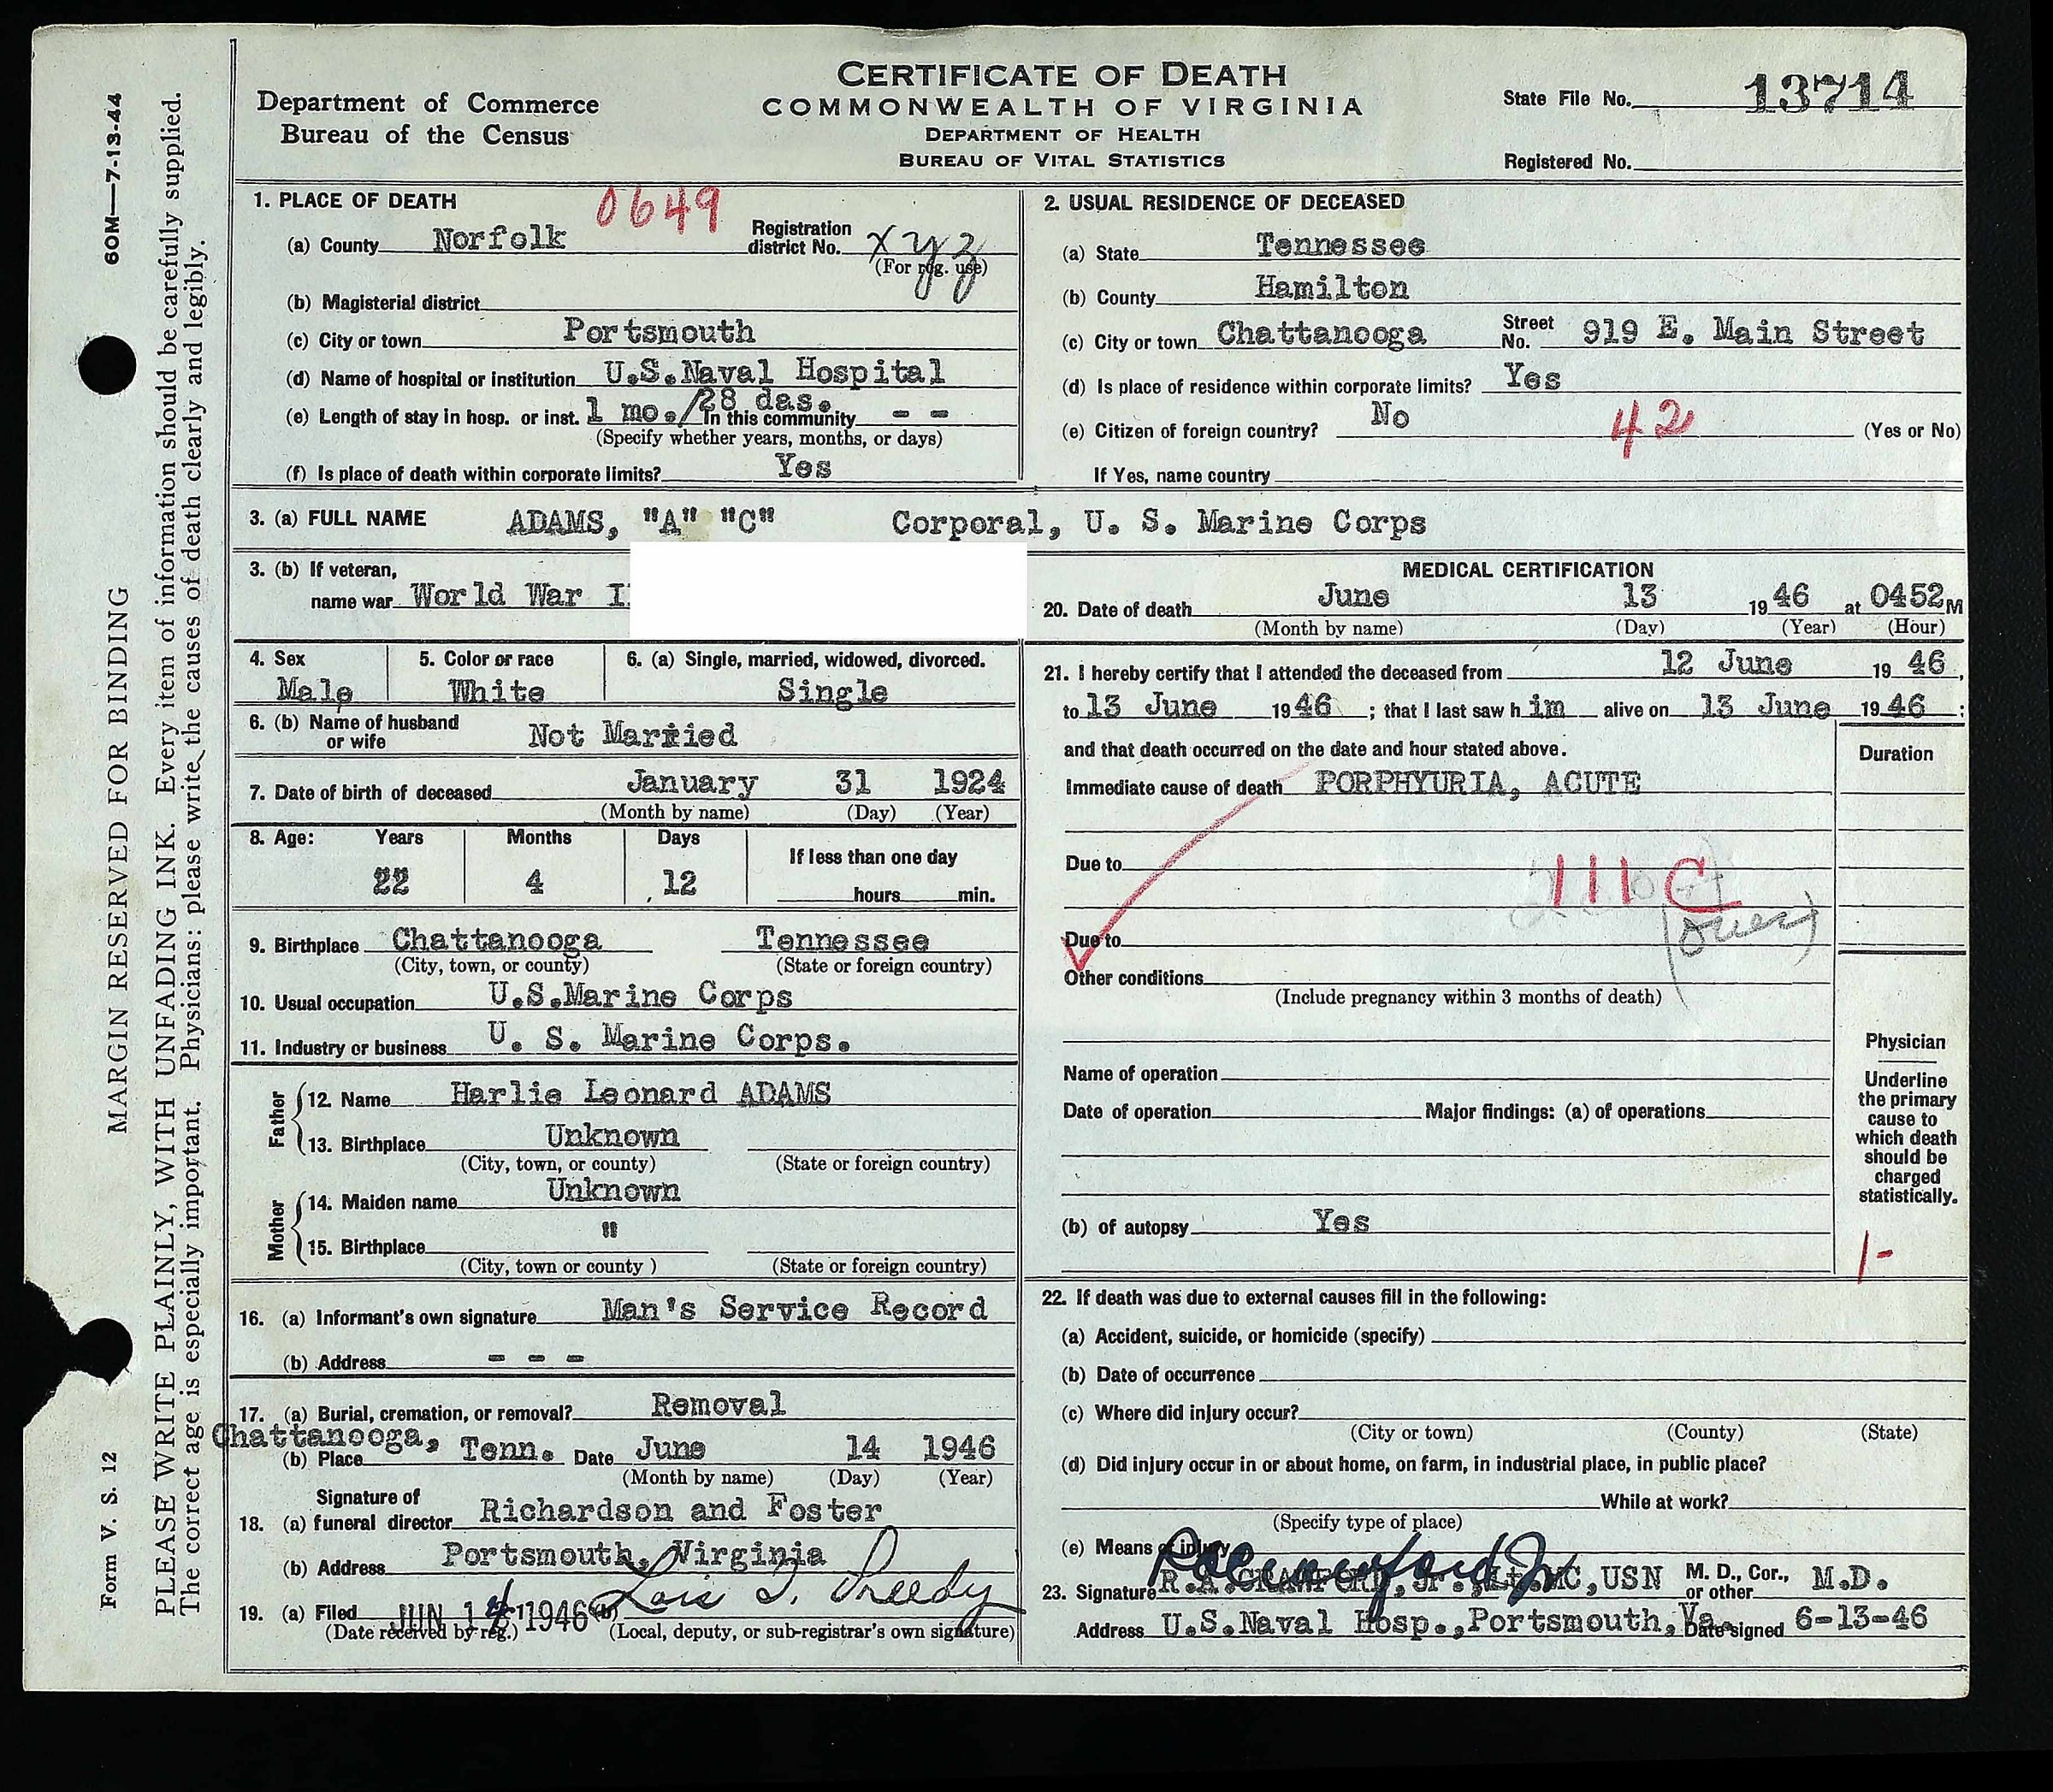 CERTIFICATE OF DEATH
COMMONWEALTH OF VIRGINIA
DEPARTMENT OF HEALTH
BUREAU OF VITAL STATISTICS
Department of Commerce
Bureau of the Census
State File No. 13714
Registered No.
60M—7-13-44
MARGIN RESERVED FOR BINDING
Form V. S. 12
PLEASE WRITE PLAINLY, WITH UNFADING INK. Every item of information should be carefully supplied.
The correct age is especially important. Physicians: please write the causes of death clearly and legibly.
1. PLACE OF DEATH 0649
(a) County Norfolk Registration district No. xyz
(For reg. use)
(b) Magisterial district
(c) City or town Portsmouth
(d) Name of hospital or institution U.S.Naval Hospital
(e) Length of stay in hosp. or inst. 1 mo./28 das. In this community - -
(Specify whether years, months, or days)
(f) Is place of death within corporate limits? Yes
2. USUAL RESIDENCE OF DECEASED
(a) State Tennessee
(b) County Hamilton
(c) City or town Chattanooga Street No. 919 E. Main Street
(d) Is place of residence within corporate limits? Yes
(e) Citizen of foreign country? No 42 (Yes or No)
If Yes, name country
3. (a) FULL NAME ADAMS, "A" "C" Corporal, U. S. Marine Corps
3. (b) If veteran,
name war World War I
4. Sex 5. Color or race 6. (a) Single, married, widowed, divorced.
Male White Single
6. (b) Name of husband or wife Not Married
7. Date of birth of deceased January 31 1924
(Month by name) (Day) (Year)
8. Age: Years Months Days If less than one day
22 4 12 hours min.
9. Birthplace Chattanooga Tennessee
(City, town, or county) (State or foreign country)
10. Usual occupation U.S.Marine Corps
11. Industry or business U. S. Marine Corps.
Father
12. Name Harlie Leonard ADAMS
13. Birthplace Unknown
(City, town, or county) (State or foreign country)
Mother
14. Maiden name Unknown
15. Birthplace "
(City, town or county ) (State or foreign country)
16. (a) Informant's own signature Man's Service Record
(b) Address - - -
17. (a) Burial, cremation, or removal? Removal
(b) Place Chattanooga, Tenn. Date June 14 1946
(Month by name) (Day) (Year)
18. (a) Signature of funeral director Richardson and Foster
(b) Address Portsmouth, Virginia
19. (a) Filed JUN 14 1946 (b)
(Date received by reg.) (Local, deputy, or sub-registrar's own signature)
MEDICAL CERTIFICATION
20. Date of death June 13 1946 at 0452 M
(Month by name) (Day) (Year) (Hour)
21. I hereby certify that I attended the deceased from 12 June 1946,
to 13 June 1946 ; that I last saw h im alive on 13 June 1946 ;
and that death occurred on the date and hour stated above. Duration
Immediate cause of death PORPHYURIA, ACUTE
Due to 111 C
(over)
Due to
Other conditions
(Include pregnancy within 3 months of death)
Name of operation
Date of operation Major findings: (a) of operations
(b) of autopsy Yes
Physician
Underline
the primary
cause to
which death
should be
charged
statistically.
1-
22. If death was due to external causes fill in the following:
(a) Accident, suicide, or homicide (specify)
(b) Date of occurrence
(c) Where did injury occur?
(City or town) (County) (State)
(d) Did injury occur in or about home, on farm, in industrial place, in public place?
While at work?
(Specify type of place)
(e) Means of injury
23. Signature R.A.CRAWFORD, Jr., Lt. MC, USN M. D., Cor., or other M.D.
Address U.S.Naval Hosp.,Portsmouth, Va. Date signed 6-13-46